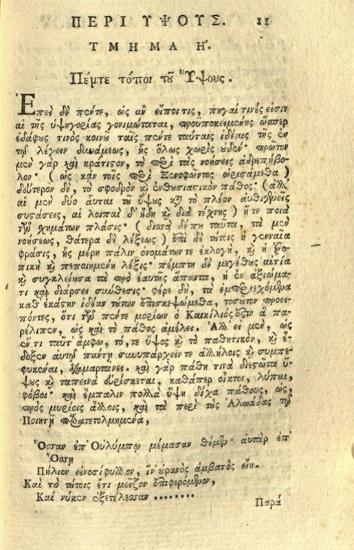 ΠΕΡΙ ΥΨΟΥΣ. 11
ΤΜΗΜΑ Η΄.
Πέντε τόποι τοῦ Ὕψους.
Ἐπεὶ δὲ πέντε, ὡς ἂν εἴποι τις, πηγαί τινές εἰσιν
αἱ τῆς ὑψηγορίας γονιμώταται, προϋποκειμένης ὥσπερ
ἐδάφους τινὸς κοινοῦ ταῖς πέντε ταύταις ἰδέαις τῆς ἐν
τῷ λέγειν δυνάμεως, ἧς ὅλως χωρὶς οὐδέν· πρῶτον
μὲν γὰρ καὶ κράτιστον, τὸ περὶ τὰς νοήσεις ἁδρεπήβο-
λον· (ὡς κἂν τοῖς περὶ Ξενοφῶντος ὡρισάμεθα)
δεύτερον δὲ, τὸ σφοδρὸν καὶ ἐνθουσιαστικὸν πάθος· (ἀλλ'
αἱ μὲν δύο αὗται τοῦ ὕψους καὶ τὸ πλέον αὐθιγενεῖς
συστάσεις, αἱ λοιπαὶ δ' ἤδη καὶ διὰ τέχνης) ἥ τε ποιὰ
τῶν σχημάτων πλάσις· (δισσὰ δέ πη ταῦτα, τὰ μὲν
νοήσεως, θάτερα δὲ λέξεως) ἐπὶ δὲ τούτοις ἡ γενναία
φράσις, ἧς μέρη πάλιν ὀνομάτων τε ἐκλογὴ, καὶ ἡ τρο-
πικὴ καὶ πεποιημένη λέξις· πέμπτη δὲ μεγέθους αἰτία
καὶ συγκλείουσα τὰ πρὸ ἑαυτῆς ἅπαντα, ἡ ἐν ἀξιώμα-
τι καὶ διάρσει σύνθεσις· φέρε δὴ, τὰ ἐμπεριεχόμενα
καθ' ἑκάστην ἰδέαν τούτων ἐπισκεψώμεθα, τοσοῦτον προει-
πόντες, ὅτι τῶν πέντε μορίων ὁ Καικίλιος ἔστιν ἃ πα-
ρέλιπεν, ὡς καὶ τὸ πάθος ἀμέλει. Ἀλλ' εἰ μὲν, ὡς
ἕν τι ταῦτ' ἄμφω, τό, τε ὕψος καὶ τὸ παθητικὸν, καὶ ἔ-
δοξεν αὐτῷ πάντη συνυπάρχειν τε ἀλλήλοις καὶ συμπε-
φυκέναι, διαμαρτάνει· καὶ γὰρ πάθη τινὰ διεστῶτα ὕ-
ψους καὶ ταπεινὰ εὑρίσκεται, καθάπερ οἶκτοι, λύπαι,
φόβοι· καὶ ἔμπαλιν πολλὰ ὕψη δίχα πάθους, ὡς
πρὸς μυρίοις ἄλλοις, καὶ τὰ περὶ τοὺς Ἀλωάδας τῷ
Ποιητῇ παρατετολμημένα,
Ὄσσαν ἐπ' Οὐλύμπῳ μέμασαν θέμεν· αὐτὰρ ἐπ'
Ὄσσῃ
Πήλιον εἰνοσίφυλλον, ἵν' οὐρανὸς ἀμβατὸς εἴη.
Καὶ τὸ τούτοις ἔτι μεῖζον ἐπιφερόμενον,
Καί νύ κεν ἐξετέλεσσαν ........
Παρὰ